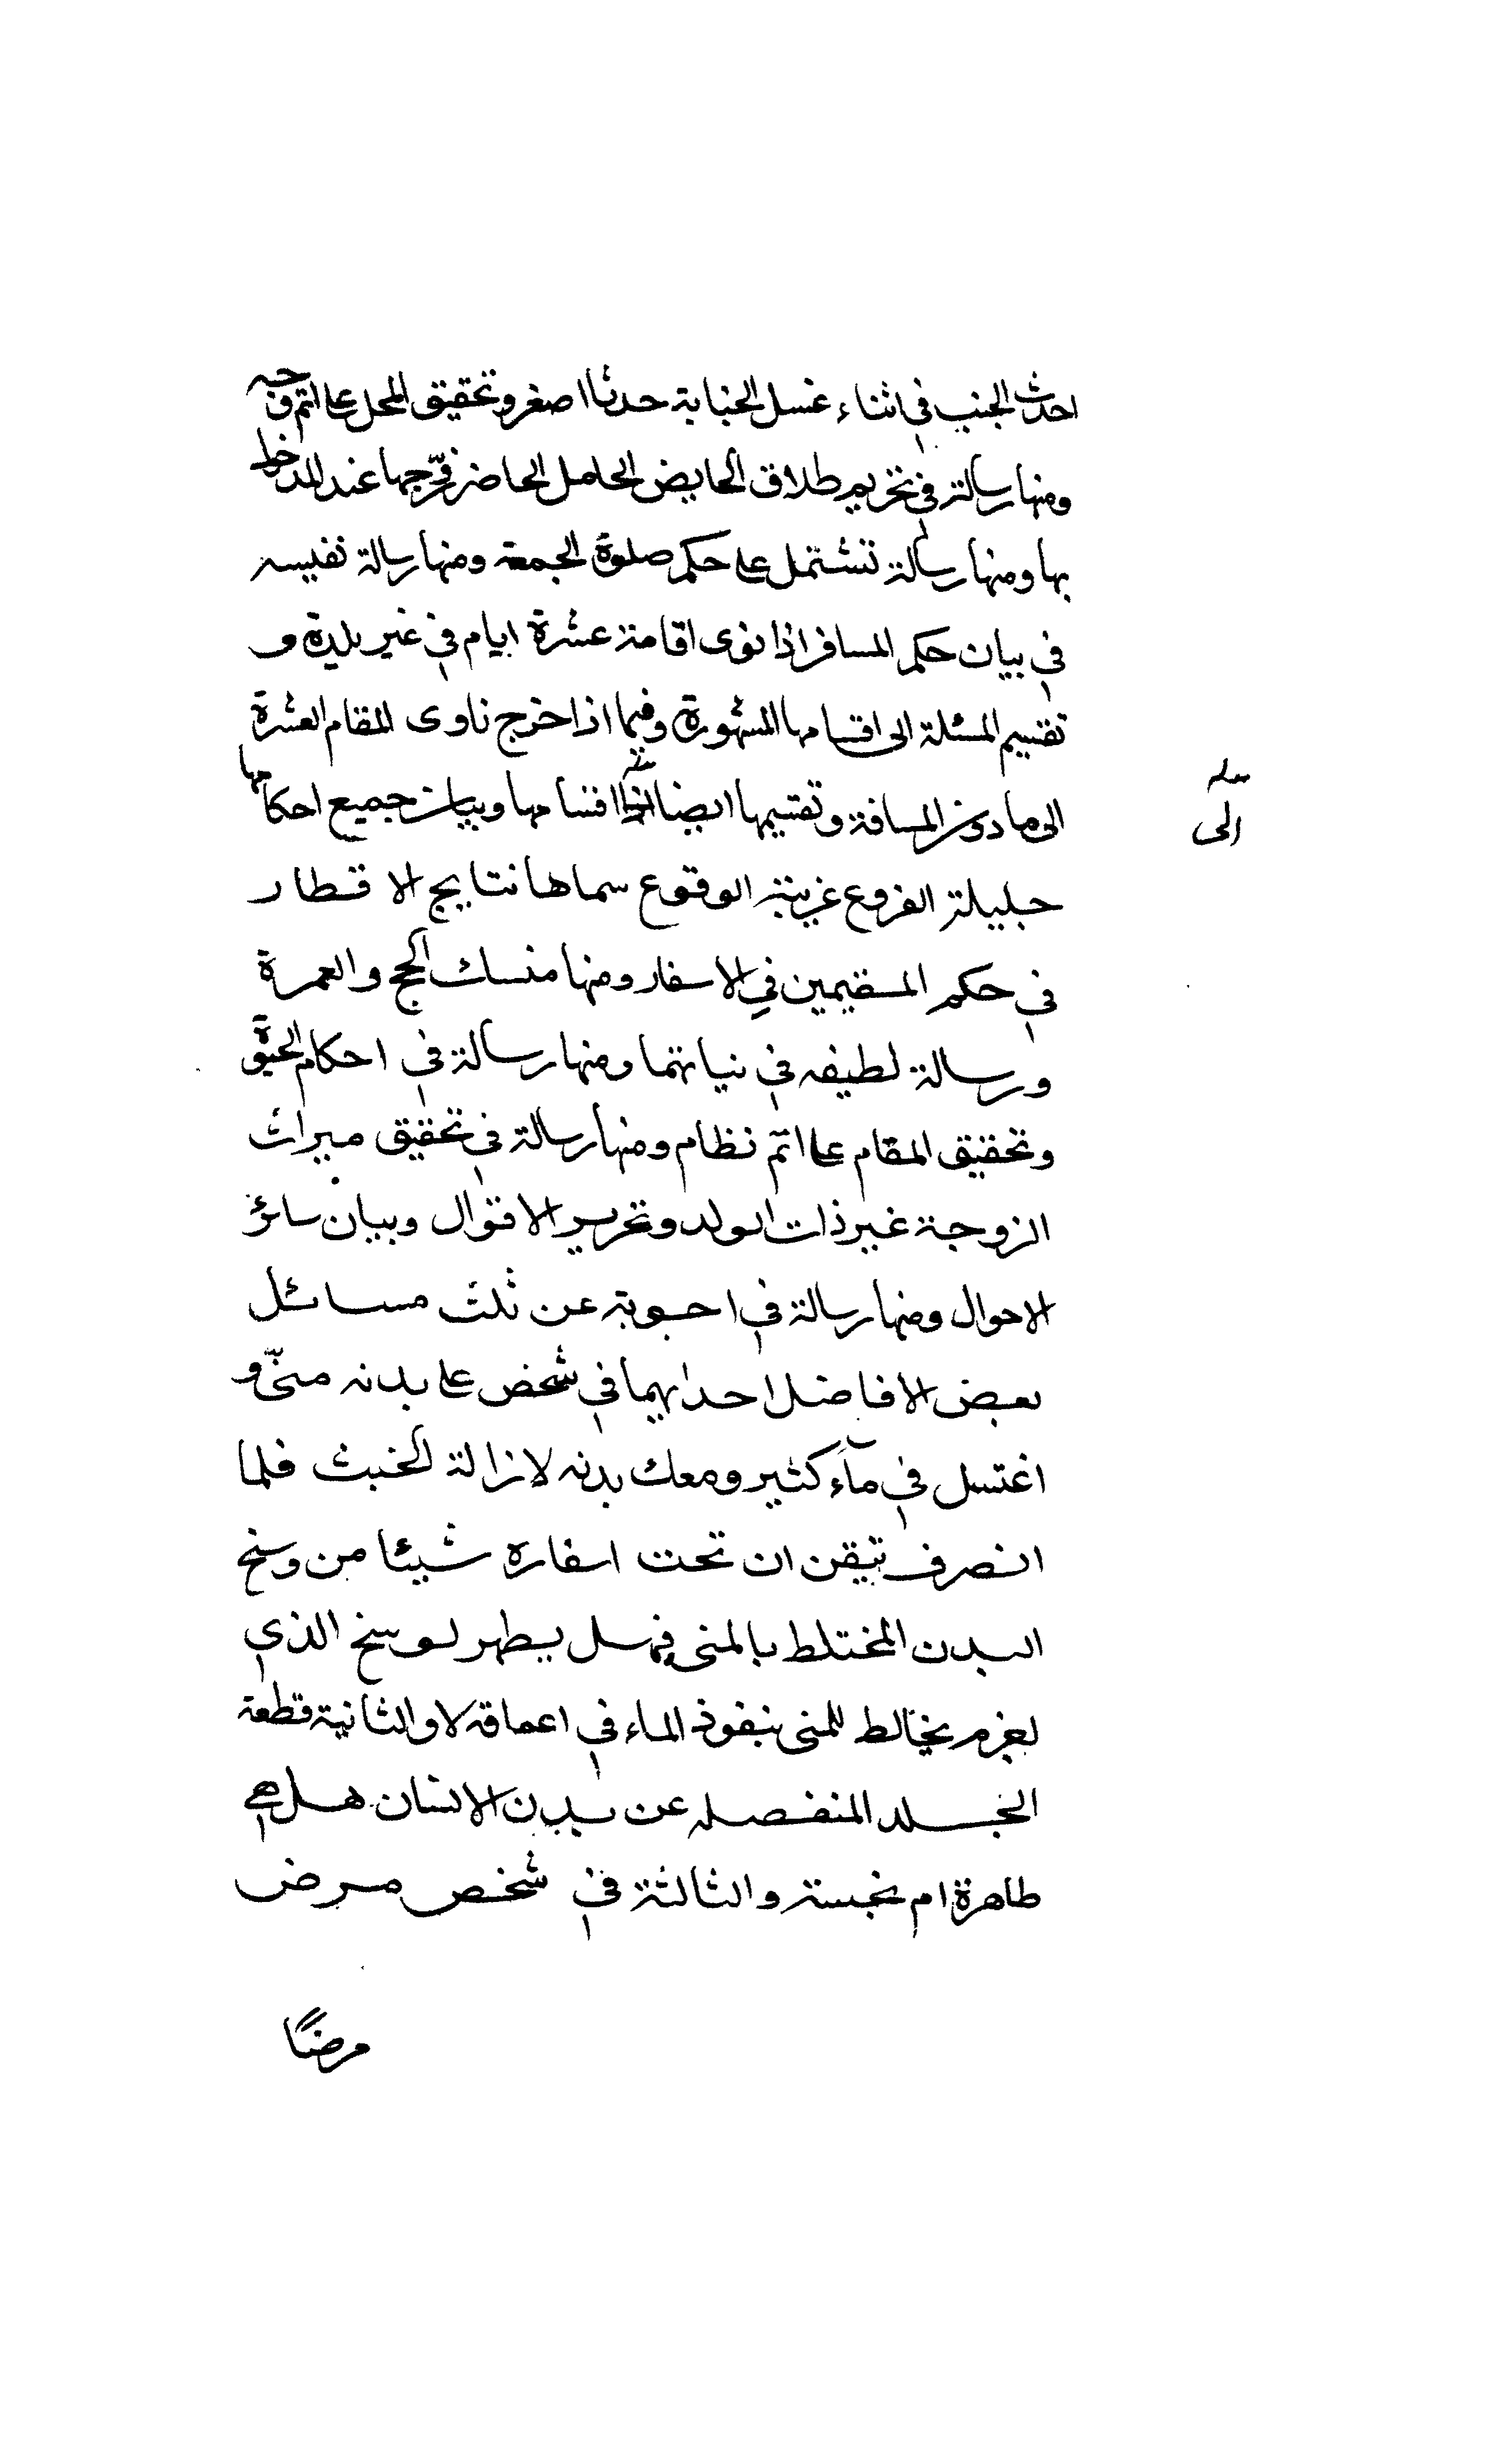 احدث الجنب في اثناء غسل الجنابة حدثا اصغر وتحقيق المحل على اتم وجه
ومنها رسالة في تحريم طلاق الحايض الحامل الحاضر زوجها عند المدخول
بها ومنها رسالة تشتمل على حكم صلوة الجمعة ومنها رسالة نفيسه
في بيان حكم المسافر اذا نوى اقامة عشرة ايام في غير بلده و
تقسيم المسئلة الى اقسامها المشهورة وفيما اذا خرج ناوى المقام العشرة
الى ما دون المسافة وتقسيمها ايضا اقسامها وبيان جميع احكامها
الى
جليلة الفروع غريبة الوقوع سماها نتايج الافطار
في حكم المقيمين في الاسفار ومنها منسك الحج والعمرة
ورسالة لطيفه في نياتهما ومنها رسالة في احكام الحبوة
وتحقيق المقام على اتم نظام ومنها رسالة في تحقيق ميراث
الزوجة غير ذات الولد وتحرير الاقوال وبيان سائر
الاحوال ومنها رسالة في اجوبة عن ثلث مسائل
لبعض الافاضل احدايهما في شخص على بدنه منيّ و
اغتسل في مآء كثير ومعك بدنه لازالة الخبث فلما
انصرف تيقن ان تحت اسفاره شيئا من وسخ
البدن المختلط بالمنى فهل يطهر لوسخ الذي
لجزم يخالط المنى بنفوذ الماء في اعماقه لا والثانية قطعة
الجلد المنفصله عن بدن الانسان هل هي
طاهرة ام نجسة والثالثة في شخص مرض
مرضًا